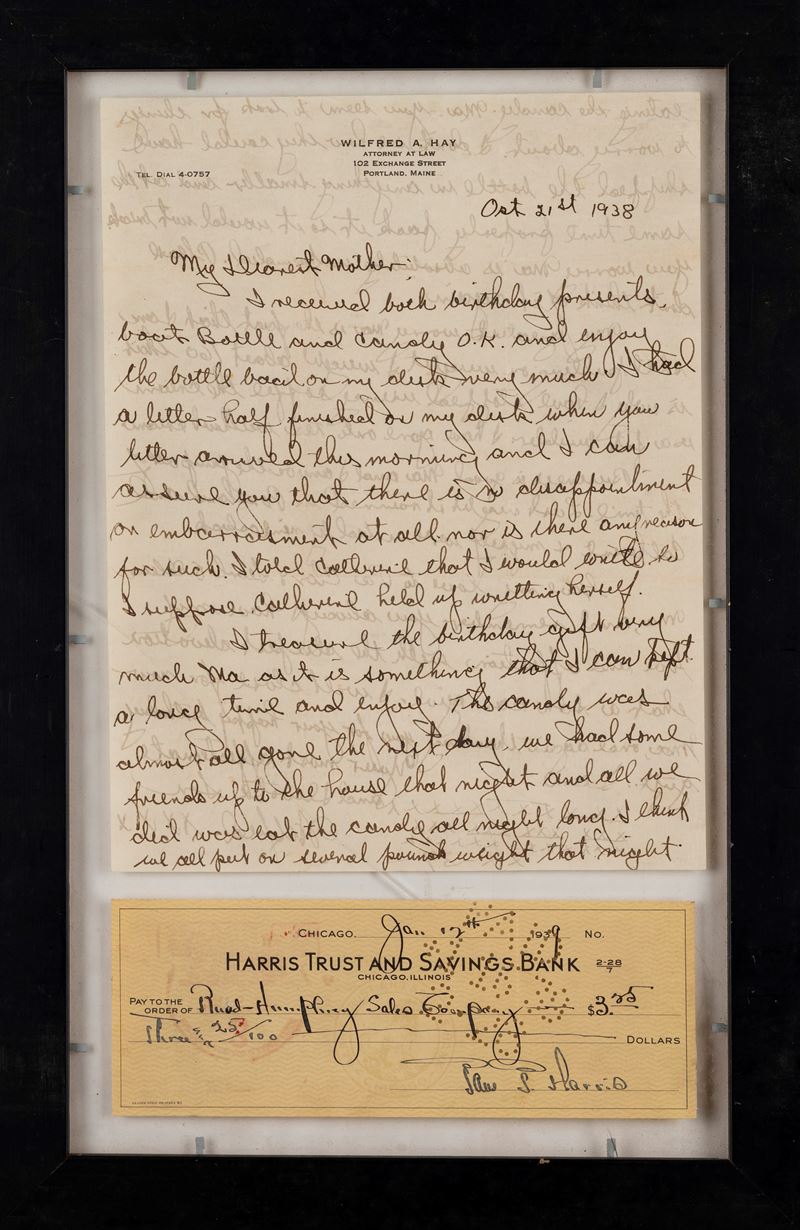 WILFRED A. HAY
ATTORNEY AT LAW
102 EXCHANGE STREET
PORTLAND, MAINE
TEL. DIAL 4-0757
Oct 21st 1938
My Dearest Mother:
I received both birthday presents,
boat Bottle and Candy O.K. and enjoy
the bottle on my desk very much. I had
a letter half finished on my desk when you
letter arrived this morning and I can
assure you that there is no disappointment
or embarrassment at all nor is there any reason
for such. I told Catherine that I would write so
I suppose Catherine held up writting herself.
I treasure the birthday gift very
much Ma as it is something that I can kept
a long time and enjoy. The candy was
almost all gone the next day, we had some
friends up to the house that night and all we
did was eat the candy all night long. I think
we all put on several pounds weight that night.
CHICAGO, Jan 12th 1939 No.
HARRIS TRUST AND SAVINGS BANK 2-28
7
CHICAGO, ILLINOIS
PAY TO THE
ORDER OF Ruud-Humphrey Sales Company $3.25
Three & 25/100 DOLLARS
Paul P. Harris